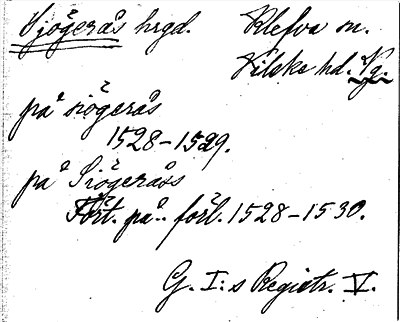 Sjögerås hrgd. Klefva sn.
Vilske hd. Vg.
på siögerås
1528-1529.
på Siögeråss
Fört. på.. förl. 1528-1530.
G. I:s Registr. V.